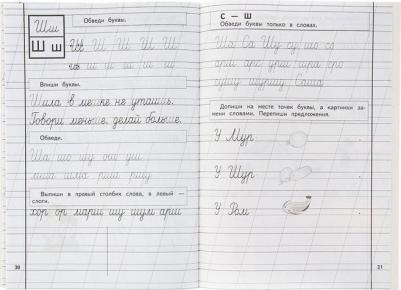 Шш
Ш ш
Обведи буквы.
Ш Ш Ш Ш Ш Ш
ш ш ш ш ш ш
Впиши буквы.
Шила в мешке не утаишь.
Говори меньше, делай больше.
Обведи.
Ша шо шу ош уш
Выпиши в правый столбик слова, а левый —
слоги.
хор ор марш шу шум арш
30
С — Ш
Обведи буквы только в словах.
Ша Са Шу су шо со
Саша
Допиши на месте точек буквы, а картинки за-
мени словами. Перепиши предложения.
У Мур
У Шур
У Ром
31